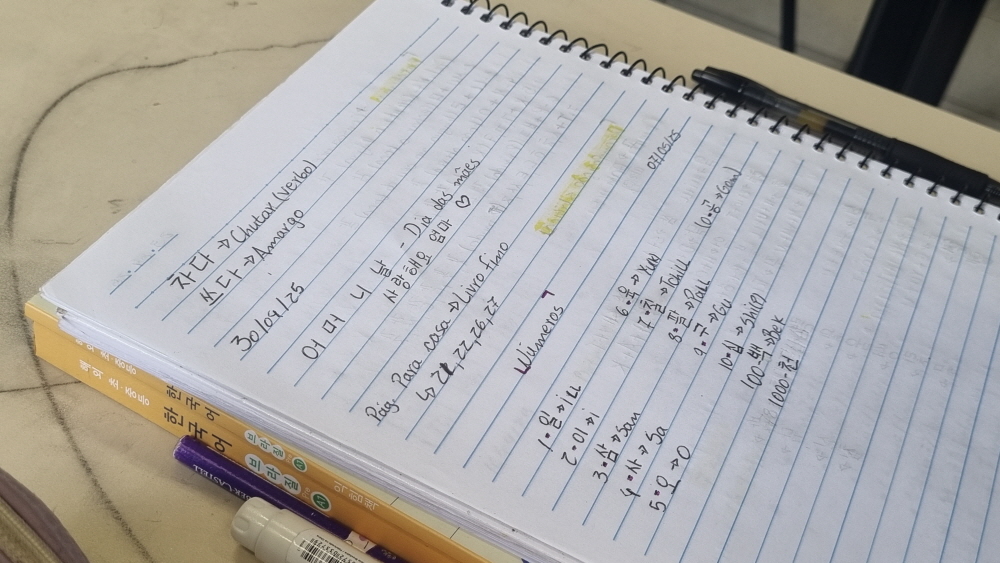 차다 → Chutar (verbo)
쓰다 → Amargo
30/04/25
어 머 니 날 - Dia das mães
사랑해요 엄마 ♡
Pág. Para casa → Livro fino
↳ 21, 22, 26, 27
07/05/25
Números
1 • 일 → iLL
2 • 이 → i
3 • 삼 → San
4 • 사 → Sa
5 • 오 → O
6 • 육 → Yuki
7 • 칠 → Tchill
8 • 팔 → Pall
9 • 구 → Gu
10 • 십 → Shipi
100 - 백 → Bek
1000 - 천
초·중등
한국어
한국어
BER CASTELL